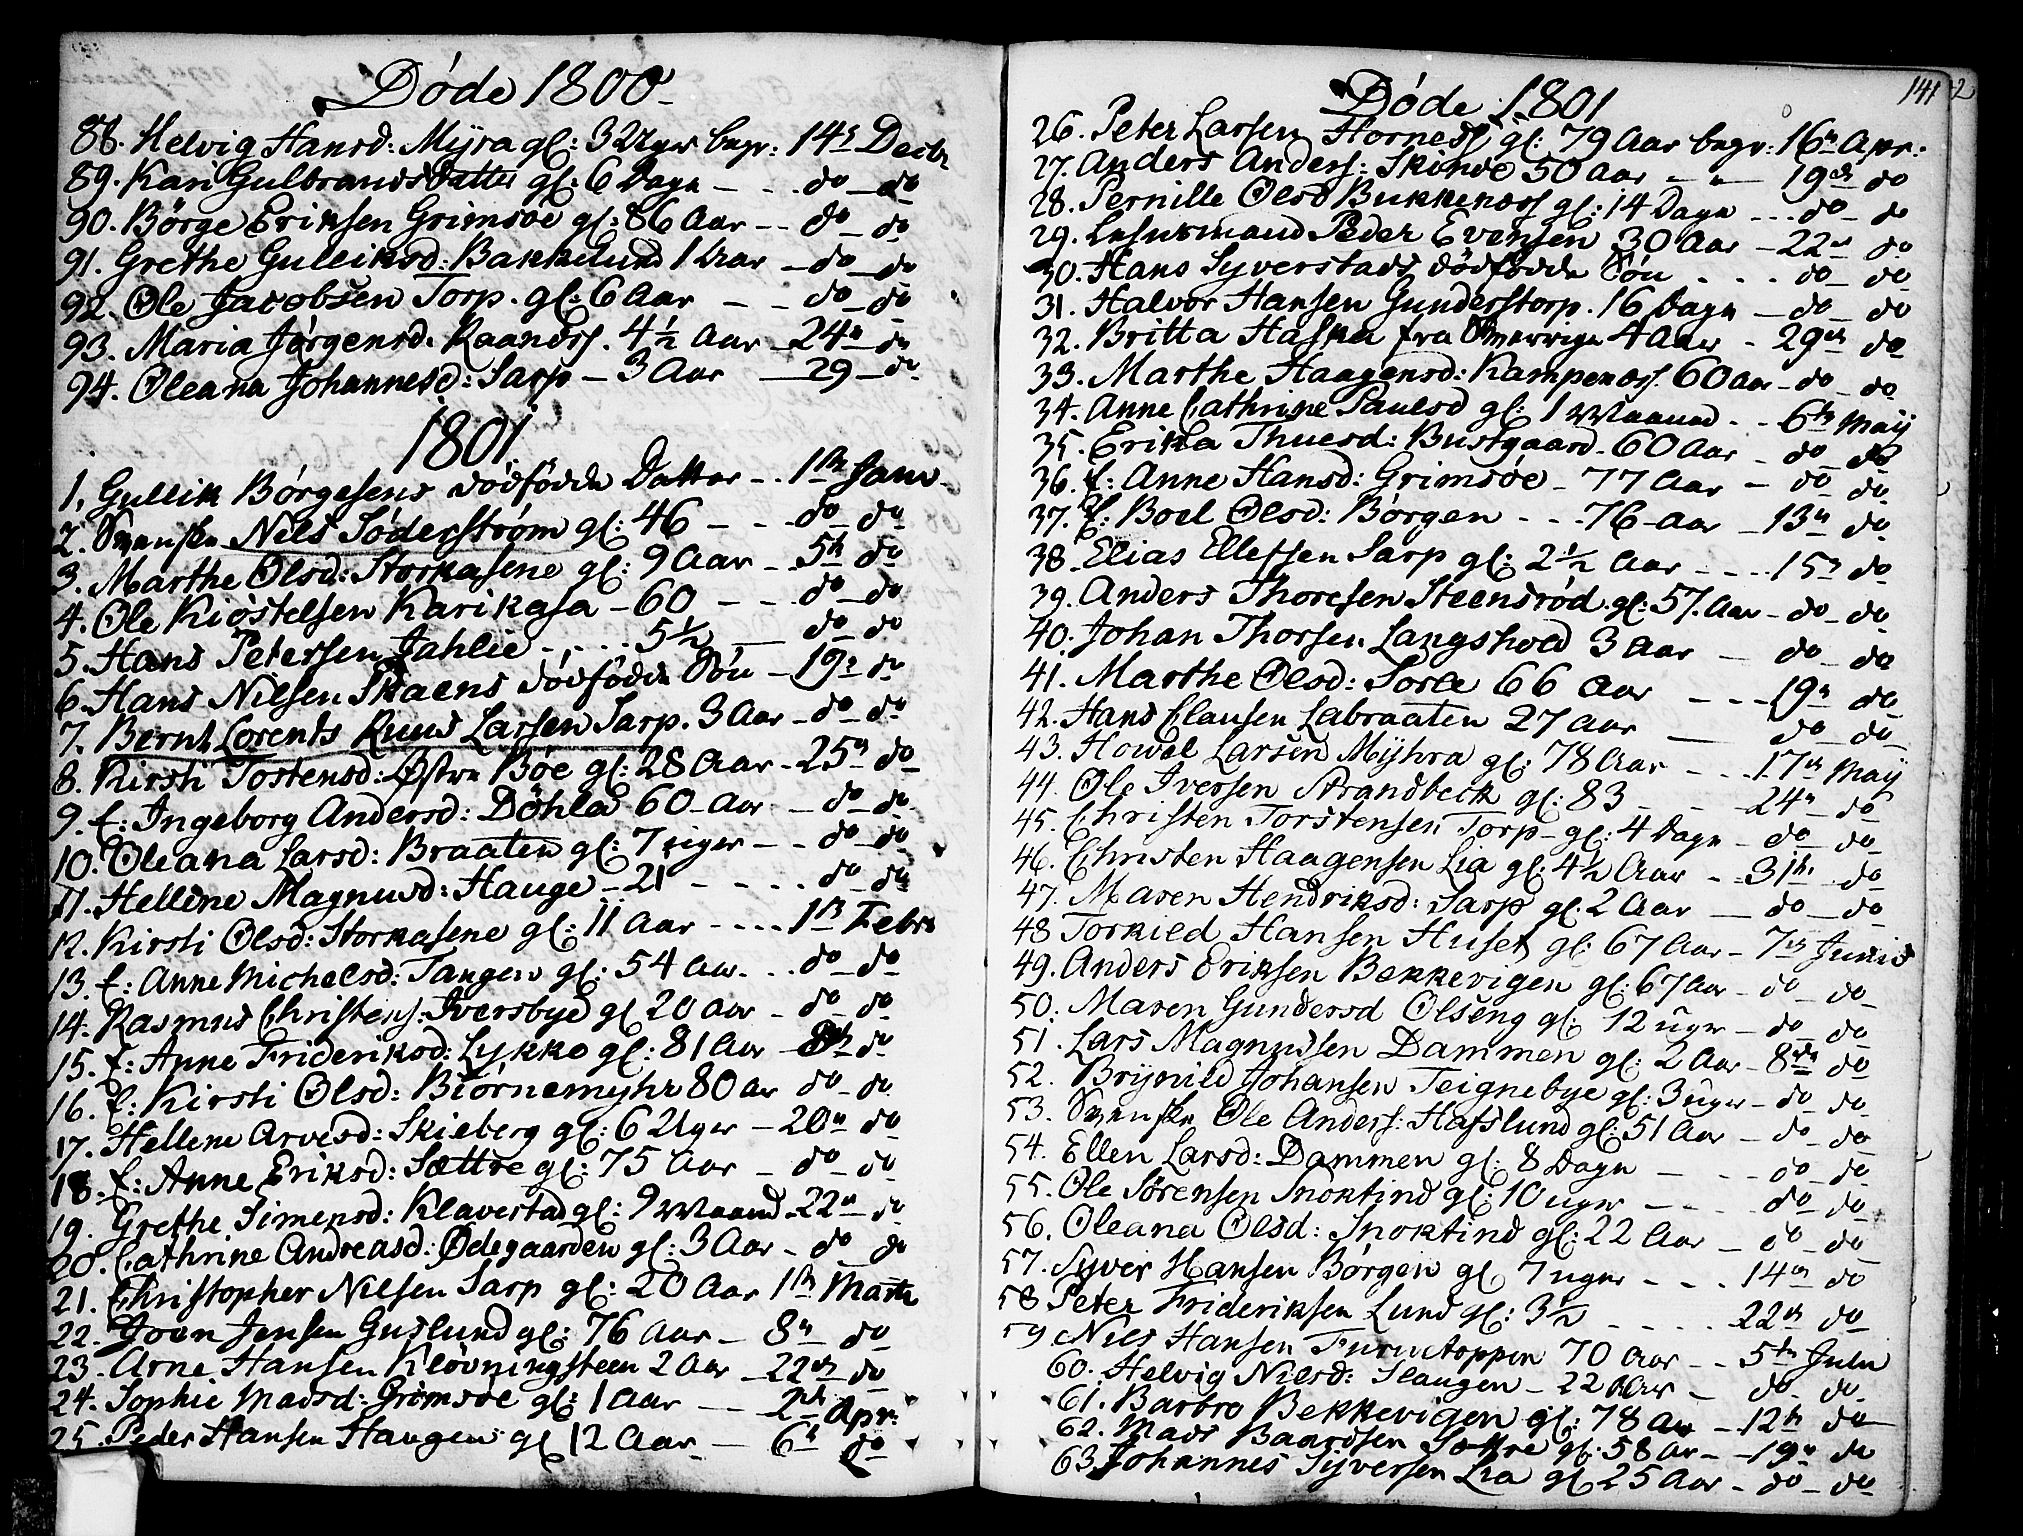 Døde 1800
88. Helvig Hansd: Myra gl: 3 Uger begr: 14de Decbr
89. Kari GulbrandsDatter gl: 6 Dage - - do - do
90. Børge Eriksen Grimsøe gl: 86 Aar - - do - do
91. Grethe Gulliksd: Bakkelund 1 Aar - do - do
92. Ole Jacobsen Torp. gl: 6 Aar - - do - do
93. Maria Jørgensd. Raaness. 4½ Aar - 24de do
94. Oleana Johannesd: Sarp - 3 Aar - 29 - do
1801
1. Gullik Børgesens dödfödde Datter - - 1ste Janv
2. Svenske Nils Söderström gl: 46 - - do - do
3. Marthe Olsd: Storkasene gl: 9 Aar - 5te do
4. Ole Kiöstelsen Karikasa - 60 - - do - do
5. Hans Petersen Jahlie - - - 5½ - do - do
6. Hans Nilsen Skaens dödfödde Sön - 19de do
7. Bernt Lorents Ruus Larsen Sarp. 3 Aar - do - do
8. Kirsti Tostensd: Østre Böe gl: 28 Aar - 25de do
9. E: Ingeborg Andersd: Döhlen 60 - Aar - do - do
10. Oleana Larsd: Braaten gl: 7 uger - - do - do
11. Hellene Magnusd: Hauge - 21 - - - do - do
12. Kirsti Olsd: Storkasene gl: 11 Aar - - - 1ste Febr
13. E: Anne Michelsd: Tangen gl: 54 Aar - - do - do
14. Rasmus Christens: Iversbye gl 20 Aar - do - do
15. E: Anne Frideriksd: Lykke gl: 81 Aar - 8de do
16. E: Kirsti Olsd: Biörnemyhr 80 Aar do - do
17. Hellene Arvesd: Skieberg gl: 6 Uger - 20de do
18. E: Anne Eriksd: Sættre gl: 75 Aar - do - do
19. Grethe Simensd: Klavestad gl: 9 Maaned - 22de do
20. Cathrine Andreasd: Ødegaarden gl: 3 Aar - do do
21. Christopher Nilsen Sarp gl: 20 Aar 1ste Marti
22. Joen Jensen Guslund gl: 76 Aar - 8de do
23. Arne Hansen Klövningsteen 2 Aar - 22de do
24. Sophie Madsd: Grimsøe gl: 1 Aar - 2de Apr:
25. Peder Hansen Haugen gl 12 Aar - 6te do
141
Döde 1801
26. Peter Larsen Horness gl: 79 Aar begr: 16de Apr:
27. Anders Anders: Skonde 50 Aar - - 19de do
28. Pernille Olsd Bukkenæss gl: 14 Dage - - do - do
29. Peder Evensen 30 Aar - 22de do
30. Hans Syverstads dödfödde Sön - - - do - do
31. Halvor Hansen Gunderstorp. 16 Dage - do - do
32. Britta Haska fra Sverrige 4 Aar - 29de do
33. Marthe Haagensd: Kampenæss. 60 Aar - do - do
34. Anne Cathrine Paulsd gl: 1 Maaned - - 6te May
35. Erikka Thuesd: Bustgaard - 60 Aar - do do
36. E: Anne Hansd: Grimsöe - 77 Aar - do do
37. E: Boel Olsd: Börgen - - 76 Aar - 13de do
38. Elias Ellefsen Sarp gl: 2½ Aar - - - 15de do
39. Anders Thoresen Steensröd gl: 57 Aar - do - do
40. Johan Thorsen Langshold 3 Aar - do - do
41. Marthe Olsd: Torle 66 Aar - - - 19de do
42. Hans Clausen Labraaten 27 Aar - do - do
43. Howel Larsen Myhra gl: 78 Aar - - 17de May
44. Ole Iversen Strandbeck gl: 83 - - 24de do
45. Christen Torstensen Torp gl: 4 Dage - do - do
46. Christen Haagensen Lia gl: 4½ Aar - - 31te do
47. Maren Hendriksd: Sarp gl: 2 Aar - do - do
48 Torkild Hansen Huset gl: 67 Aar - 7de Junii
49. Anders Eriksen Bekkevigen gl: 67 Aar - do - do
50. Maren Gundersd Olseng gl: 12 uger - do - do
51. Lars Magnussen Dammen gl: 2 Aar - 8de do
52. Brynild Johansen Teignebye gl: 3 uger - do - do
53. Svenske Ole Anders: Hafslund gl: 51 Aar - do - do
54. Ellen Larsd: Dammen gl: 8 Dage - - - do - do
55. Ole Sörensen Snoktind gl: 10 uger - - - do - do
56. Oleana Olsd: Snoktind gl: 22 Aar - do - do
57. Syver Hansen Börgen gl 7 uger - - - 14de do
58 Peter Frideriksen Lund gl: 3½ - - - - 22de do
59 Nils Hansen 70 Aar - - 5te Julii
60. Helvig Nilsd: Haugen - 22 Aar - do - do
61. Barbro Bekkevigen gl: 78 Aar - 12te do
62. Mads Baardsen Sættre gl: 58 Ar - 19de do
63 Johannes Syversen Lia gl 25 Aar - do - do